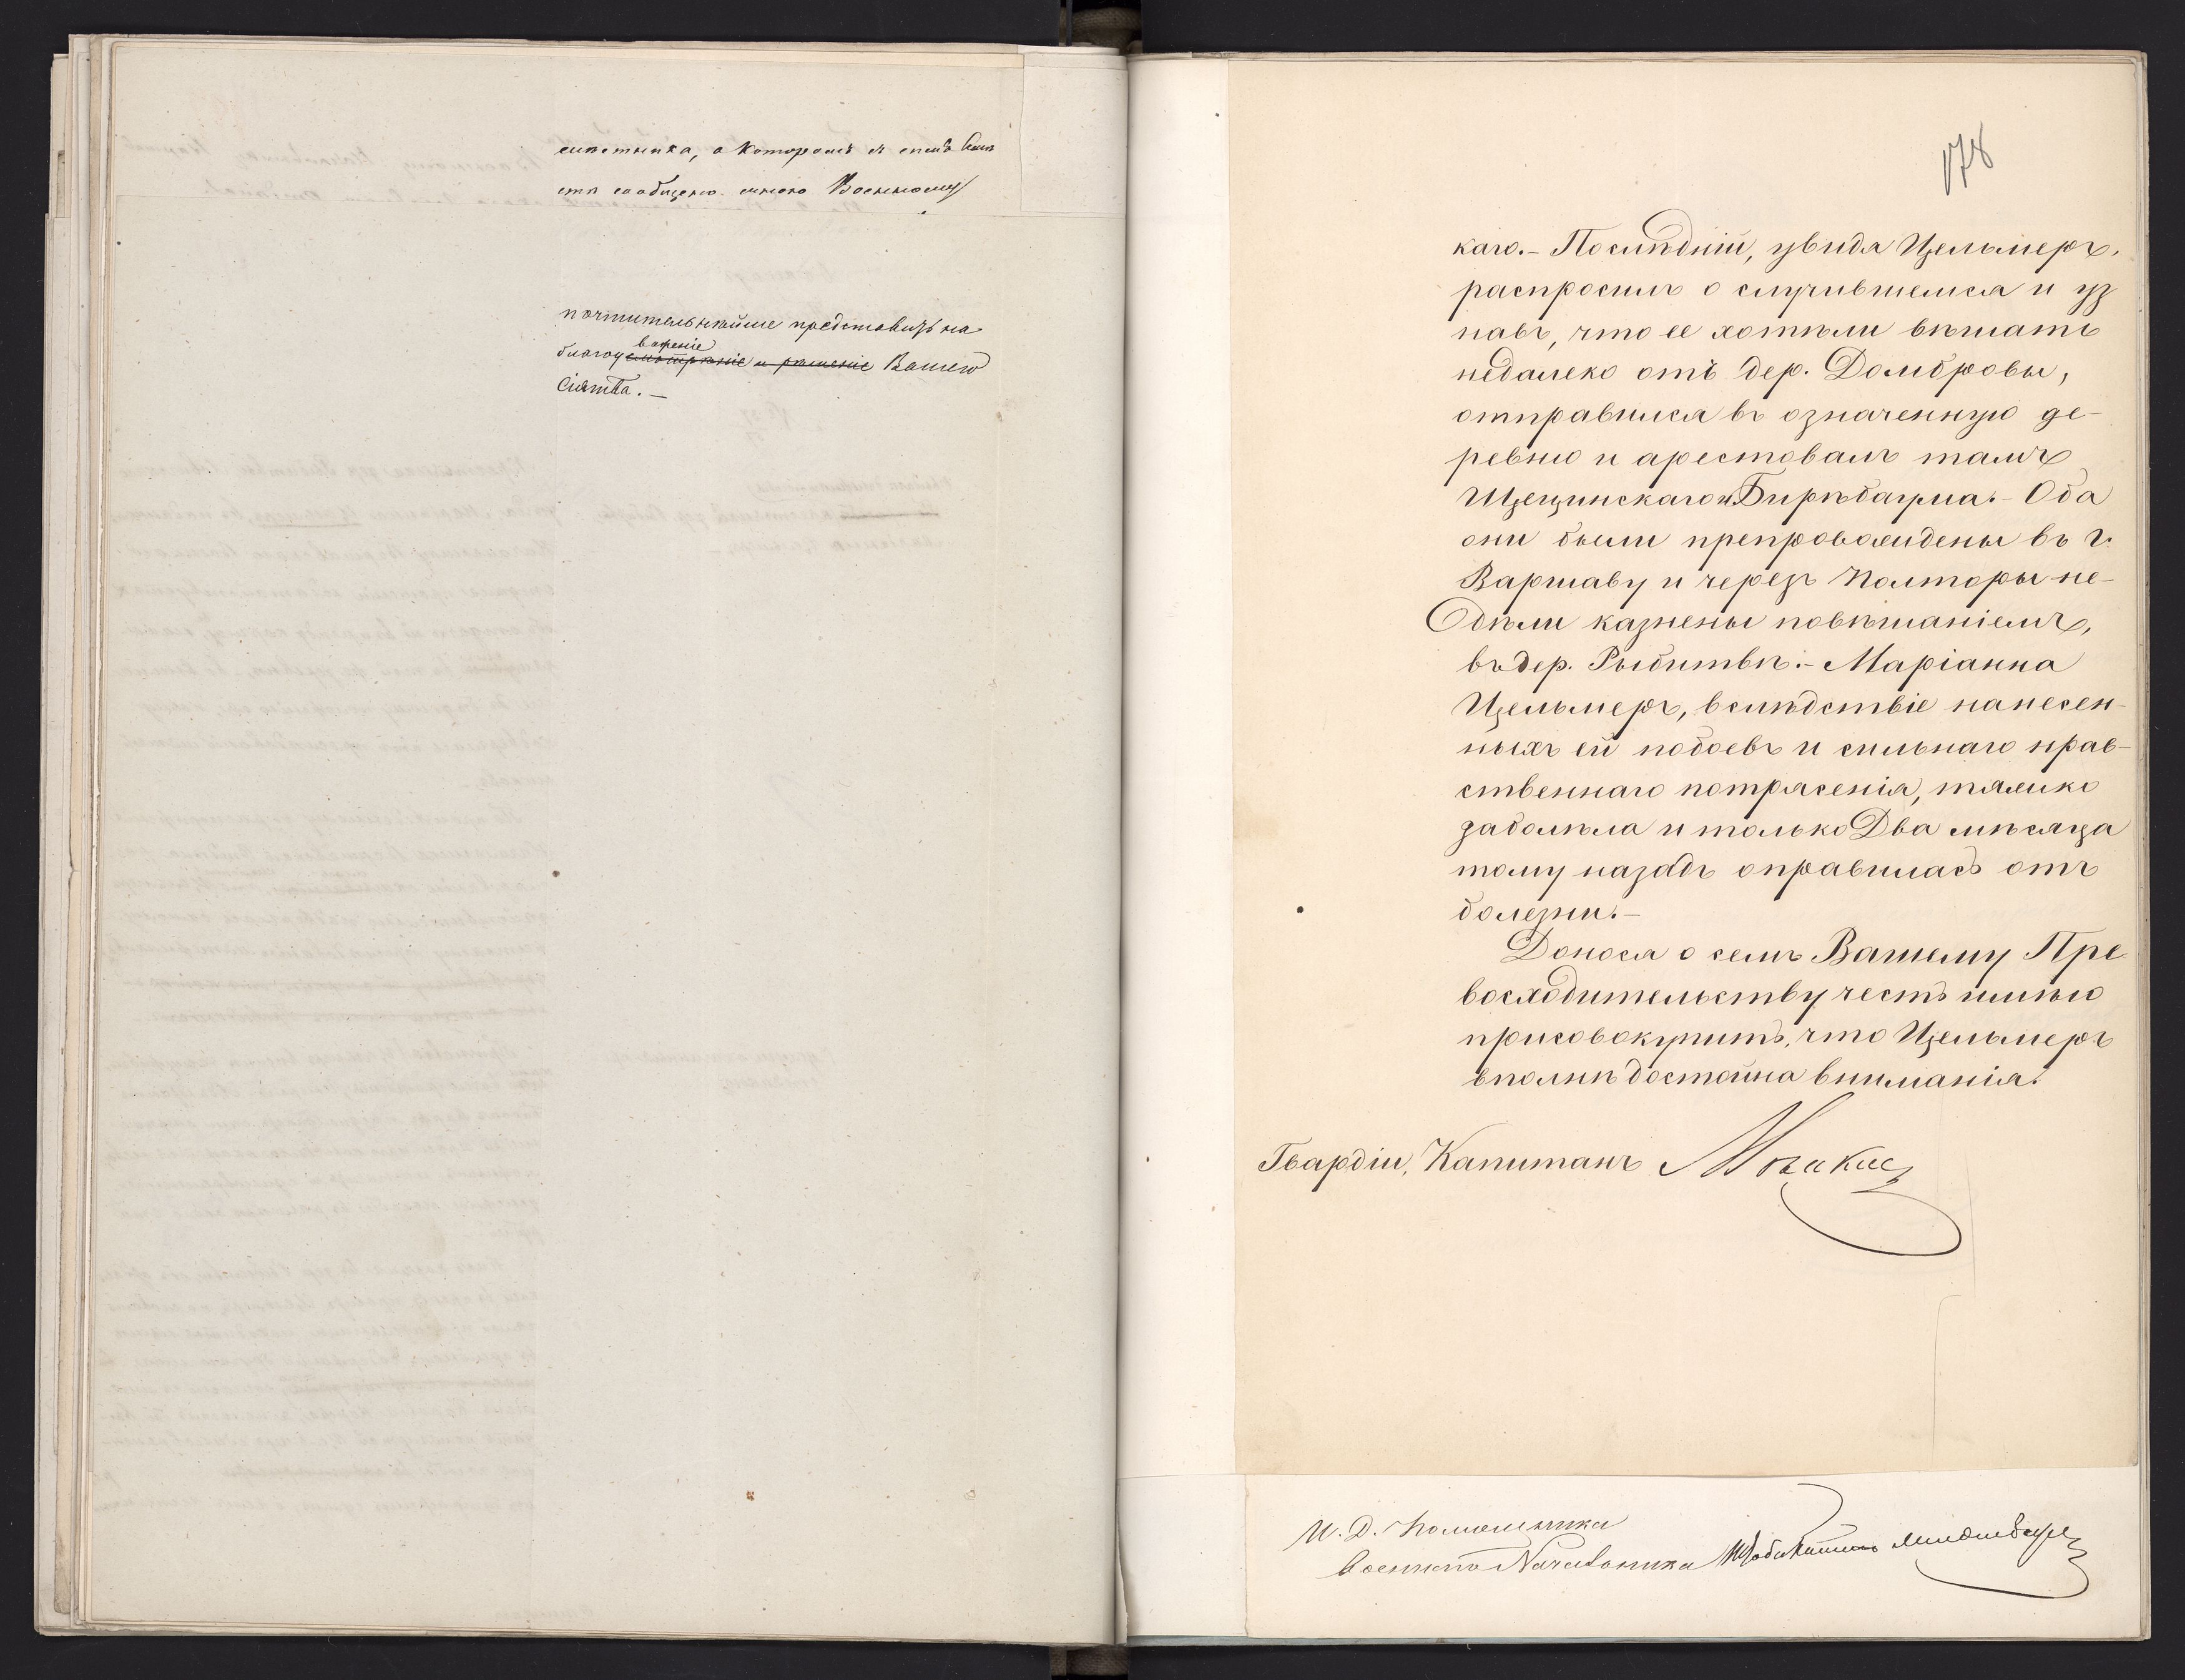 о которомъ
сообщено мною Военному
почтительнѣйше представить на
благоусмотрѣніе и рѣшеніе Вашего
важеніе
Сіятства.—
178
каго.- Послѣдній, увидя Цельмеръ,
распросилъ о случившемся и уз
навъ, что ее хотѣли вѣшать
недалеко отъ дер. Домбровы,
отправился въ означенную де-
ревню и арестовалъ тамъ
Щецинскаго и Бирнбаума.- Оба
они были препровождены въ г.
Варшаву и черезъ полторы не-
дѣли казнены повѣшаніемъ,
въ дер. Рыбитвѣ.- Маріанна
Цельмеръ, вслѣдствіе нанесен-
ныхъ ей побоевъ и сильнаго нрав-
ственнаго потрясенія, тяжко
заболѣла и только два мѣсяца
тому назадъ оправилась отъ
болезни.-
Донося о семъ Вашему Пре
восходительству, честь имѣю
присовокупить, что Цельмеръ
вполнѣ достойна вниманія.
Гвардіи, Капитанъ
И. Д. Помощника
Военнаго Начальника Штабсъ-Капитанъ